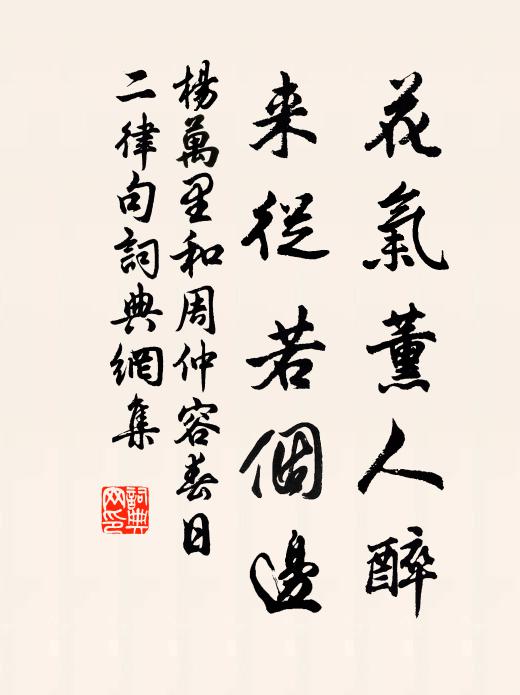 花氣薰人醉
来從若個邊
楊萬里和周仲容春日
二律句詞典網集
詞典網印